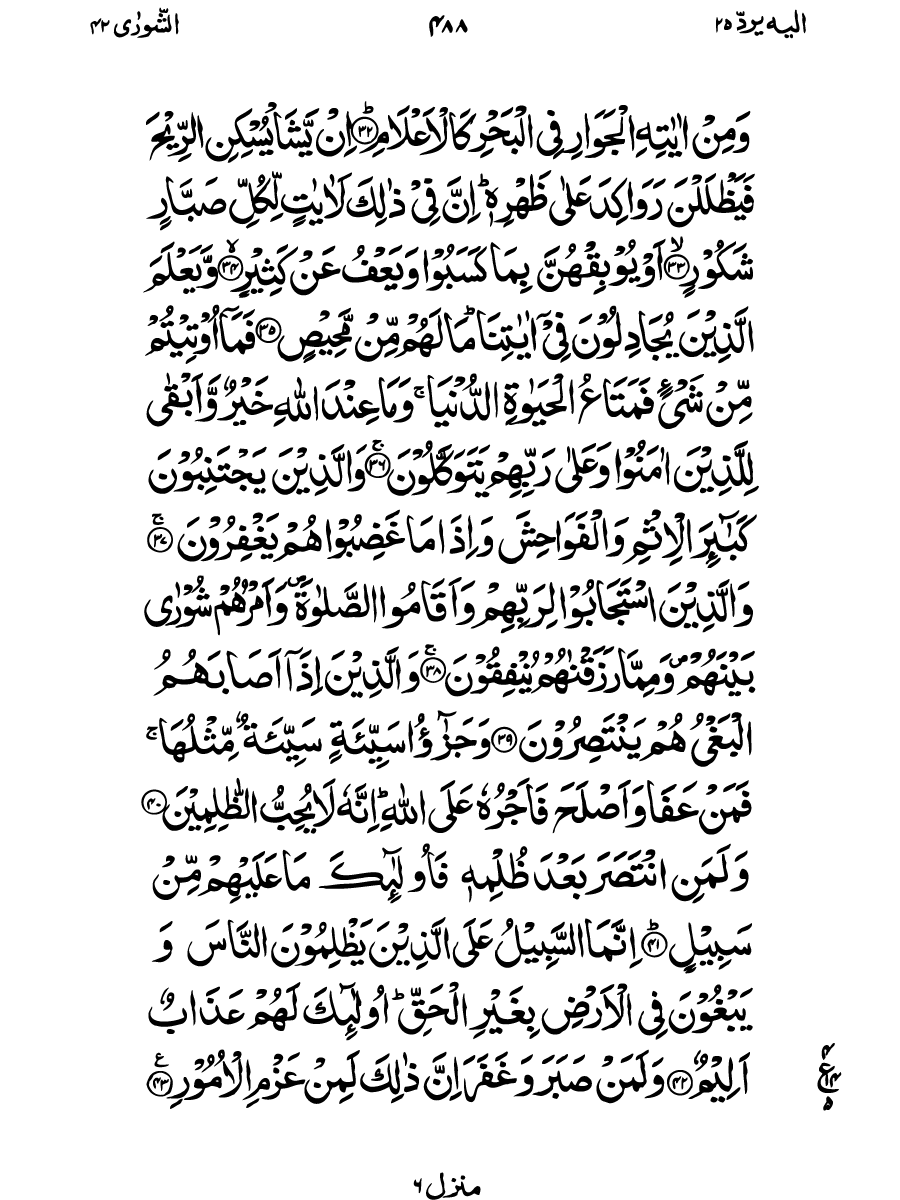 الشّورٰى ٤٢ ٤٨٨ اليه يردّ ٢٥
وَمِنْ اٰيٰتِهِ الْجَوَارِ فِى الْبَحْرِ كَالْاَعْلَامِ ؕ‏﴿۳۲﴾ اِنْ يَّشَاْ يُسْكِنِ الرِّيْحَ
فَيَظْلَلْنَ رَوَاكِدَ عَلٰى ظَهْرِهٖ ؕ اِنَّ فِىْ ذٰلِكَ لَاٰيٰتٍ لِّكُلِّ صَبَّارٍ
شَكُوْرٍ ۙ‏﴿۳۳﴾ اَوْ يُوْبِقْهُنَّ بِمَا كَسَبُوْا وَيَعْفُ عَنْ كَثِيْرٍ ‏﴿۳۴﴾ وَّيَعْلَمَ
الَّذِيْنَ يُجَادِلُوْنَ فِىْۤ اٰيٰتِنَا ؕ مَا لَهُمْ مِّنْ مَّحِيْصٍ‏ ﴿۳۵﴾ فَمَاۤ اُوْتِيْتُمْ
مِّنْ شَىْءٍ فَمَتَاعُ الْحَيٰوةِ الدُّنْيَا ۚ وَمَا عِنْدَ اللّٰهِ خَيْرٌ وَّاَبْقٰى
لِلَّذِيْنَ اٰمَنُوْا وَعَلٰى رَبِّهِمْ يَتَوَكَّلُوْنَ ۚ‏﴿۳۶﴾ وَالَّذِيْنَ يَجْتَنِبُوْنَ
كَبٰٓٮِٕرَ الْاِثْمِ وَالْفَوَاحِشَ وَاِذَا مَا غَضِبُوْا هُمْ يَغْفِرُوْنَ ۚ‏﴿۳۷﴾
وَالَّذِيْنَ اسْتَجَابُوْا لِرَبِّهِمْ وَاَقَامُوا الصَّلٰوةَ وَاَمْرُهُمْ شُوْرٰى
بَيْنَهُمْ وَمِمَّا رَزَقْنٰهُمْ يُنْفِقُوْنَ ۚ‏﴿۳۸﴾ وَالَّذِيْنَ اِذَاۤ اَصَابَهُمُ
الْبَغْىُ هُمْ يَنْتَصِرُوْنَ‏ ﴿۳۹﴾ وَجَزٰٓؤُا سَيِّئَةٍ سَيِّئَةٌ مِّثْلُهَا ۚ
فَمَنْ عَفَا وَاَصْلَحَ فَاَجْرُهٗ عَلَى اللّٰهِ ؕ اِنَّهٗ لَا يُحِبُّ الظّٰلِمِيْنَ‏ ﴿۴۰﴾
وَلَمَنِ انْتَصَرَ بَعْدَ ظُلْمِهٖ فَاُولٰٓٮِٕكَ مَا عَلَيْهِمْ مِّنْ
سَبِيْلٍ ؕ‏﴿۴۱﴾ اِنَّمَا السَّبِيْلُ عَلَى الَّذِيْنَ يَظْلِمُوْنَ النَّاسَ وَ
يَبْغُوْنَ فِى الْاَرْضِ بِغَيْرِ الْحَقِّ ؕ اُولٰٓٮِٕكَ لَهُمْ عَذَابٌ
اَلِيْمٌ‏ ﴿۴۲﴾ وَلَمَنْ صَبَرَ وَغَفَرَ اِنَّ ذٰلِكَ لَمِنْ عَزْمِ الْاُمُوْرِ‏ ﴿۴۳﴾
٤
ع ١٤
٥
منزل ٦